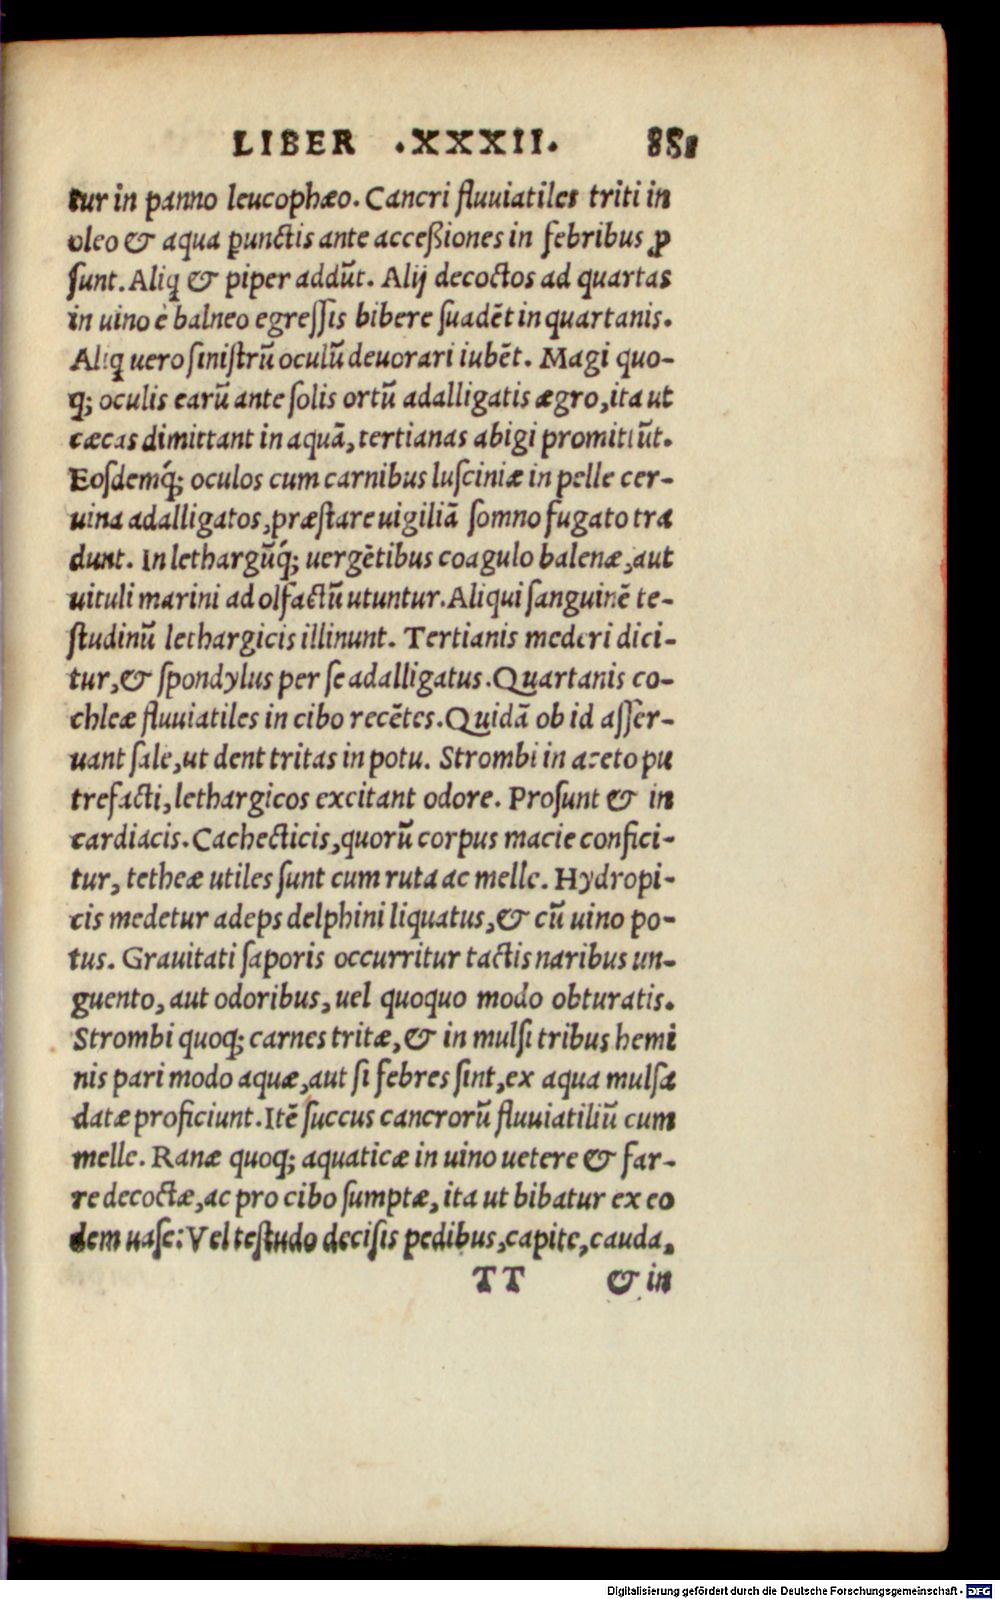 LIBER .XXXII. 881
tur in panno leucophæo. Cancri fluuiatiles triti in
oleo & aqua ꝑunctis ante acceßiones in febribus ꝓ
sunt. Aliq & piper addūt. Alij decoctos ad quartas
in uino è balneo egressis bibere suadēt in quartanis.
Aliq uero sinistrū oculū deuorari iubēt. Magi quo-
q; oculis earū ante solis ortū adalligatis ægro, ita ut
cæcas dimittant in aquā, tertianas abigi promittūt.
Eosdemq́; oculos cum carnibus lusciniæ in pelle cer-
uina adalligatos, præstare uigiliā somno fugato tra
dunt. In lethargūq́; uergētibus coagulo balenæ, aut
uituli marini ad olfactū utuntur. Aliqui sanguinē te-
studinū lethargicis illinunt. Tertianis mederi dici-
tur, & spondylus per se adalligatus. Quartanis co-
chleæ fluuiatiles in cibo recētes. Quidā ob id asser-
uant sale, ut dent tritas in potu. Strombi in aceto pu
trefacti, lethargicos excitant odore. Prosunt & in
cardiacis. Cachecticis, quorū corpus macie confici-
tur, tetheæ utiles sunt cum ruta ac melle. Hydropi-
cis medetur adeps delphini liquatus, & cū uino po-
tus. Grauitati saporis occurritur tactis naribus un-
guento, aut odoribus, uel quoquo modo obturatis.
Strombi quoq; carnes tritæ, & in mulsi tribus hemi
nis pari modo aquæ, aut si febres sint, ex aqua mulsa
datæ proficiunt. Itē succus cancrorū fluuiatiliū cum
melle. Ranæ quoq; aquaticæ in uino uetere & far-
re decoctæ, ac pro cibo sumptæ, ita ut bibatur ex eo
dem uase: Vel testudo decisis pedibus, capite, cauda,
TT & in
Digitalisierung gefördert durch die Deutsche Forschungsgemeinschaft - DFG